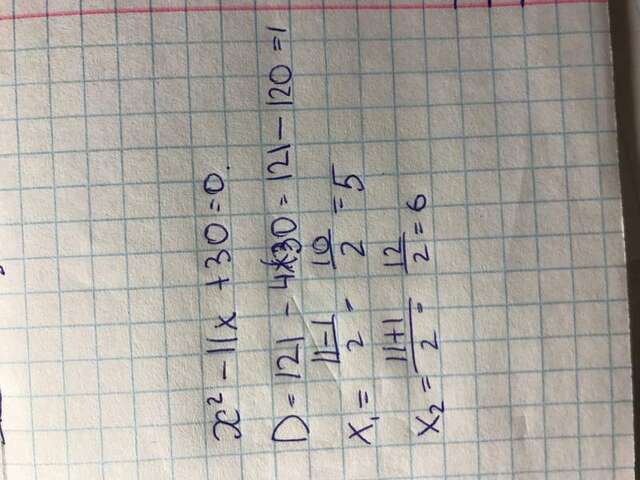 x² - 11x + 30 = 0.
D = 121 - 4·30 = 121 - 120 = 1
x₁ = (11-1)/2 = 10/2 = 5
x₂ = (11+1)/2 = 12/2 = 6